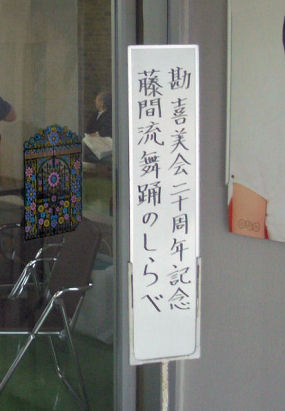 勘喜美会二十周年記念
藤間流舞踊のしらべ